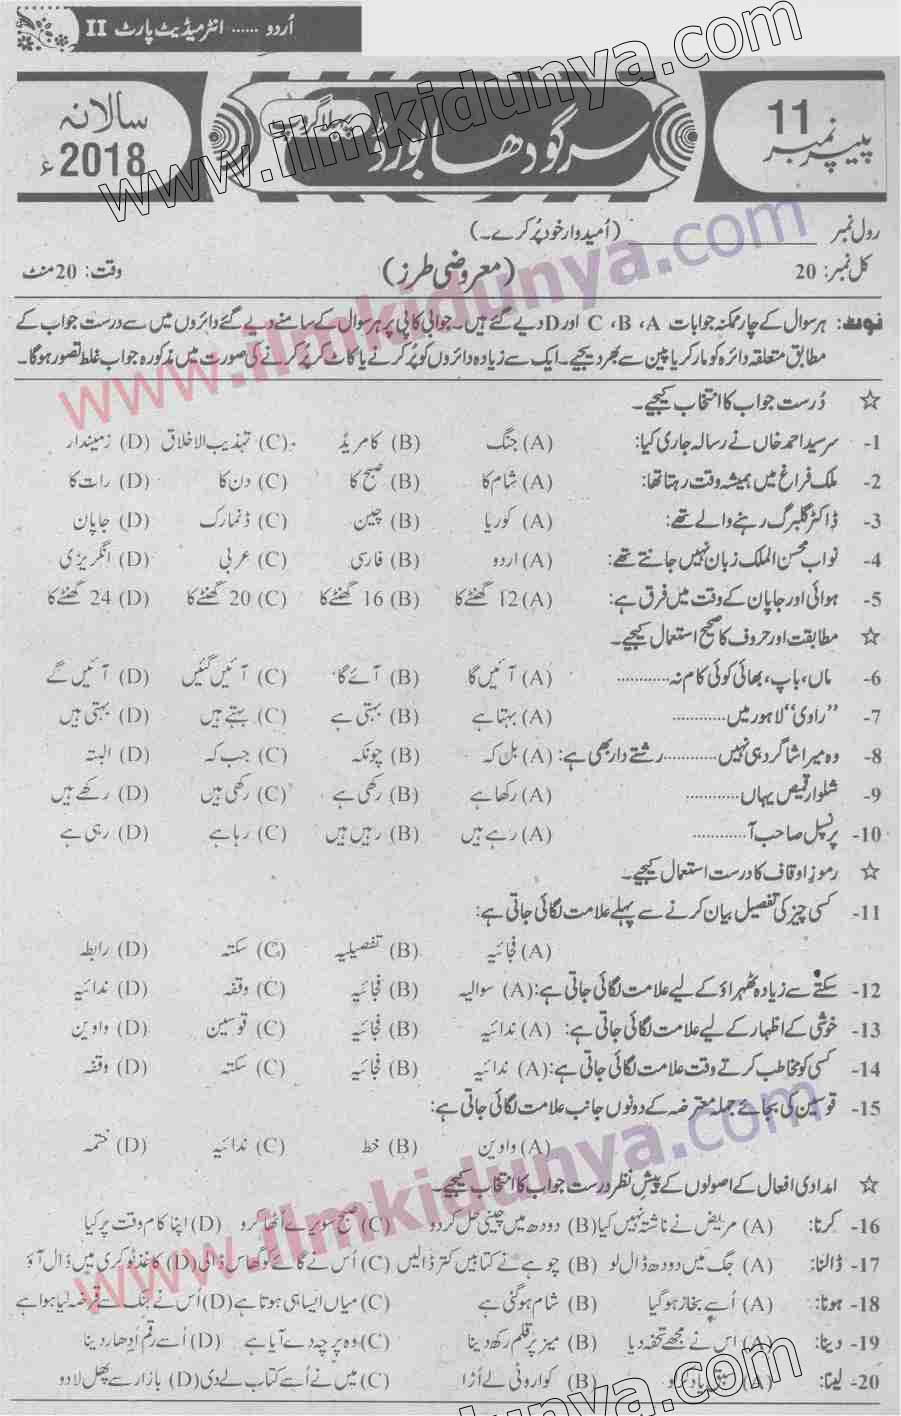 اُردو ...... انٹرمیڈیٹ پارٹ II
پیپر نمبر 11
سرگودھا بورڈ
پہلا گروپ
سالانہ 2018ء
رول نمبر ____________ (اُمیدوار خود پُر کرے۔)
کل نمبر: 20 (معروضی طرز) وقت: 20 منٹ
نوٹ: ہر سوال کے چار ممکنہ جوابات C ،B ،A اور D دیے گئے ہیں۔ جوابی کاپی پر ہر سوال کے سامنے دیے گئے دائروں میں سے درست جواب کے
مطابق متعلقہ دائرہ کو مارکر یا پین سے بھر دیجیے۔ ایک سے زیادہ دائروں کو پُر کرنے یا کاٹ کر پُر کرنے کی صورت میں مذکورہ جواب غلط تصور ہوگا۔
☆ دُرست جواب کا انتخاب کیجیے۔
1- سرسید احمد خاں نے رسالہ جاری کیا: (A) جنگ (B) کامریڈ (C) تہذیب الاخلاق (D) زمیندار
2- ملک فراغ میں ہمیشہ وقت رہتا تھا: (A) شام کا (B) صبح کا (C) دن کا (D) رات کا
3- ڈاکٹر گلبرگ رہنے والے تھے: (A) کوریا (B) چین (C) ڈنمارک (D) جاپان
4- نواب محسن الملک زبان نہیں جانتے تھے: (A) اردو (B) فارسی (C) عربی (D) انگریزی
5- ہوائی اور جاپان کے وقت میں فرق ہے: (A) 12 گھنٹے کا (B) 16 گھنٹے کا (C) 20 گھنٹے کا (D) 24 گھنٹے کا
☆ مطابقت اور حروف کا صحیح استعمال کیجیے۔
6- ماں، باپ، بھائی کوئی کام نہ ............ (A) آئیں گا (B) آئے گا (C) آئیں گئیں (D) آئیں گے
7- ’’راوی‘‘ لاہور میں ............ (A) بہتا ہے (B) بہتی ہے (C) بہتے ہیں (D) بہتی ہیں
8- وہ میرا شاگرد ہی نہیں ............ رشتے دار بھی ہے: (A) بل کہ (B) چونکہ (C) جب کہ (D) البتہ
9- شلوار قمیض یہاں ............ (A) رکھا ہے (B) رکھی ہے (C) رکھی ہیں (D) رکھے ہیں
10- پرنسپل صاحب آ ............ (A) رہے ہیں (B) رہیں ہیں (C) رہا ہے (D) رہی ہے
☆ رموز اوقاف کا درست استعمال کیجیے۔
11- کسی چیز کی تفصیل بیان کرنے سے پہلے علامت لگائی جاتی ہے:
(A) فجائیہ (B) تفصیلیہ (C) سکتہ (D) رابطہ
12- سکتے سے زیادہ ٹھہراؤ کے لیے علامت لگائی جاتی ہے: (A) سوالیہ (B) فجائیہ (C) وقفہ (D) ندائیہ
13- خوشی کے اظہار کے لیے علامت لگائی جاتی ہے: (A) ندائیہ (B) فجائیہ (C) قوسین (D) واوین
14- کسی کو مخاطب کرتے وقت علامت لگائی جاتی ہے: (A) ندائیہ (B) فجائیہ (C) سکتہ (D) وقفہ
15- قوسین کی بجائے جملہ معترضہ کے دونوں جانب علامت لگائی جاتی ہے:
(A) واوین (B) خط (C) ندائیہ (D) ختمہ
☆ امدادی افعال کے اصولوں کے پیش نظر درست جواب کا انتخاب کیجیے۔
16- کرنا: (A) مریض نے ناشتہ نہیں کیا (B) دودھ میں چینی حل کر دو (C) صبح سویرے اُٹھا کرو (D) اپنا کام وقت پر کیا
17- ڈالنا: (A) جگ میں دودھ ڈال لو (B) چوہے نے کتابیں کتر ڈالیں (C) اُس نے گائے کو گھاس ڈالی (D) کاغذ ٹوکری میں ڈال آؤ
18- ہونا: (A) اُسے بخار ہو گیا (B) شام ہو گئی ہے (C) میاں ایسا ہی ہوتا ہے (D) اُس نے بنک سے قرضہ لیا ہوا ہے
19- دینا: (A) اس نے مجھے تحفہ دیا (B) میز پر قلم رکھ دینا (C) وہ پرچہ دے آیا ہے (D) اُسے رقم اُدھار دینا
20- لینا: (A) سبق یاد کر لو (B) کوا روٹی لے اُڑا (C) میں نے اُسے کتاب لے دی (D) بازار سے پھل لا دو
www.ilmkidunya.com
www.ilmkidunya.com
www.ilmkidunya.com
www.ilmkidunya.com